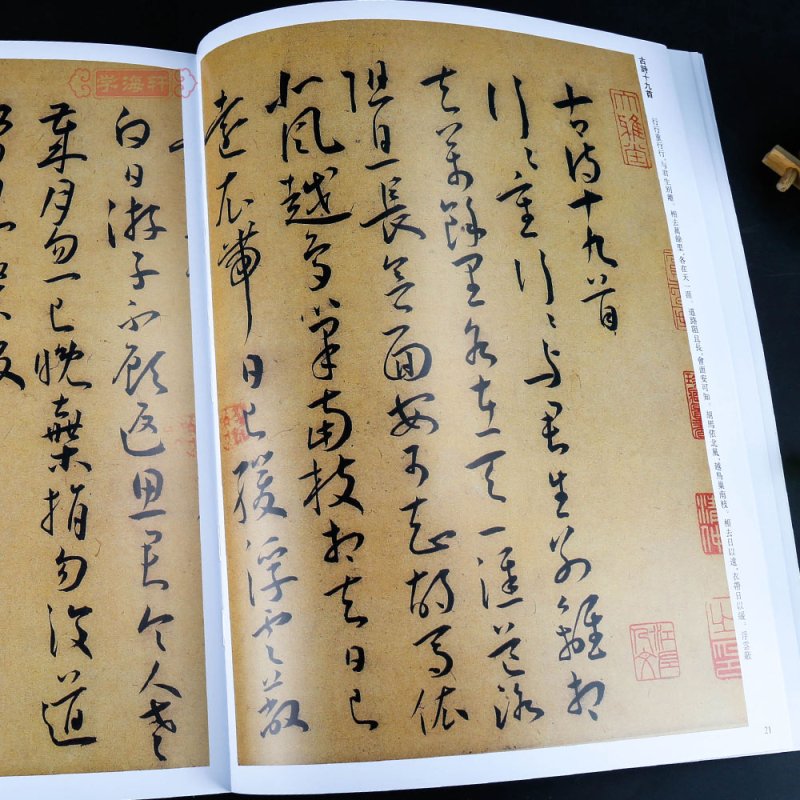 古詩十九首
行行重行行，与君生別離。相去萬餘里，各在天一涯。道路阻且長，會面安可知。胡馬依北風，越鳥巢南枝。相去日以遠，衣帶日以緩。浮雲蔽
古詩十九首
行〻重行〻与君生別離相
去萬餘里各在天一涯道路
阻且長會面安可知胡馬依
北風越鳥巢南枝相去日已
遠衣帶日已緩浮雲蔽
21
学海轩
白日游子不顧返思君令人老
歲月忽已晚棄捐勿復道